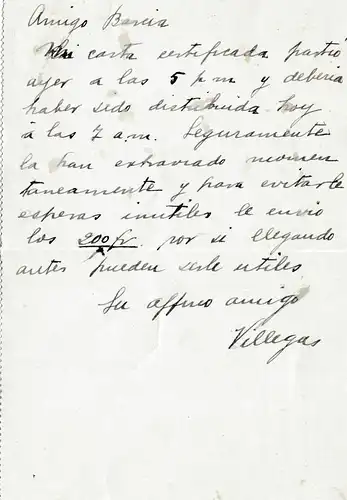 Amigo Barcia
Mi carta certificada partió
ayer a las 5 p m y debería
haber sido distribuida hoy
á las 7 a.m. Seguramente
la han extraviado momen
taneamente y para evitarle
esperas inutiles le envio
los 200 fr. por si llegando
antes pueden serle utiles
Su affmo amigo
Villegas